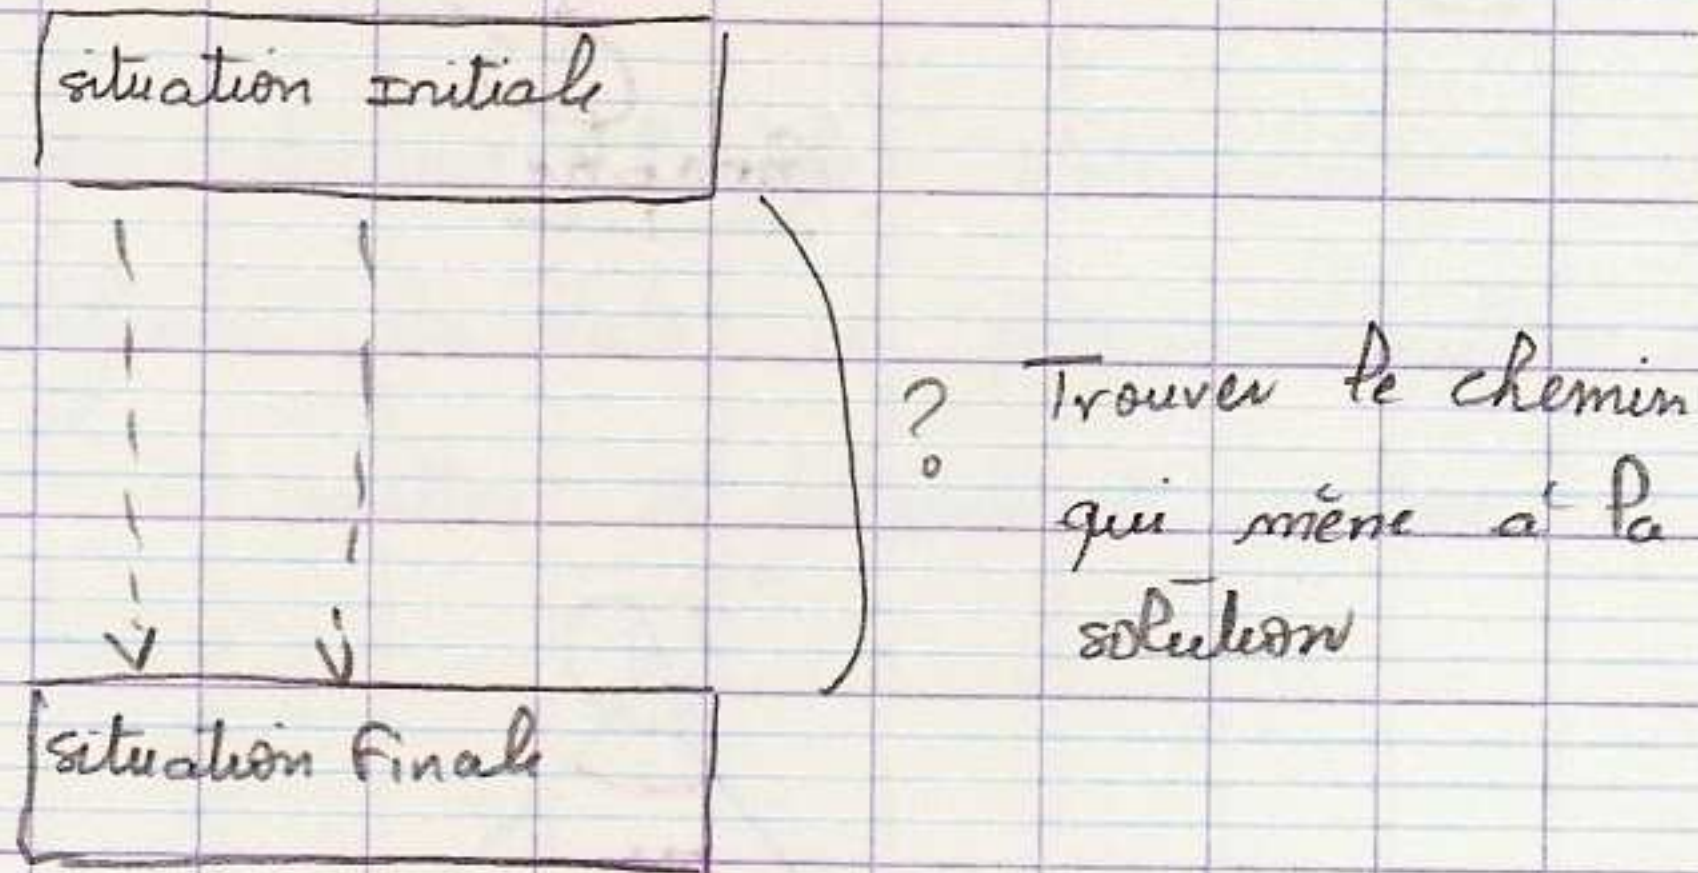 situation Initiale
? Trouver le chemin
qui mène à la
solution
situation Finale